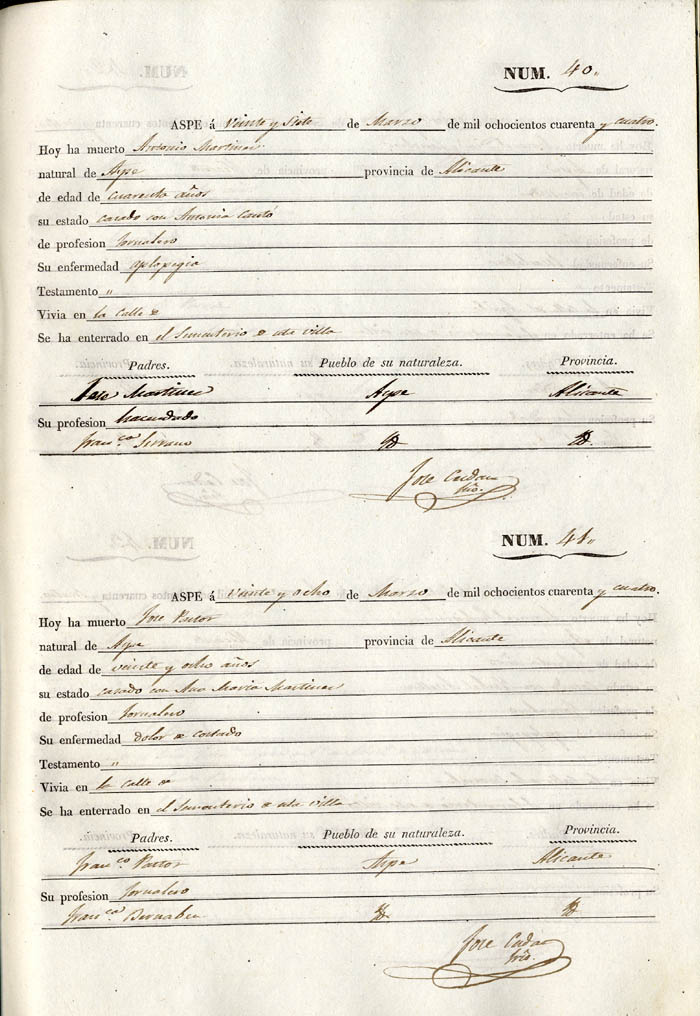 NUM. 40,,
ASPE á Veinte y Siete de Marzo de mil ochocientos cuarenta y cuatro.
Hoy ha muerto Antonio Martinez
natural de Aspe provincia de Alicante
de edad de cuarenta años
su estado casado con Antonia Cantó
de profesion Jornalero
Su enfermedad aplopegia
Testamento ,,
Vivia en la Calle de
Se ha enterrado en el Sementerio de esta villa
Padres. Pueblo de su naturaleza. Provincia.
Jose Martinez Aspe Alicante
Su profesion hacendado
Fran.ca Serrano
Jose
NUM. 41,,
ASPE á Veinte y ocho de Marzo de mil ochocientos cuarenta y cuatro.
Hoy ha muerto Jose Pastor
natural de Aspe provincia de Alicante
de edad de veinte y ocho años
su estado casado con Ana Maria Martinez
de profesion Jornalero
Su enfermedad dolor de costado
Testamento ,,
Vivia en la calle de
Se ha enterrado en el Sementerio de esta villa
Padres. Pueblo de su naturaleza. Provincia.
Fran.co Pastor Aspe Alicante
Su profesion Jornalero
Fran.ca Bernabeu
Jose